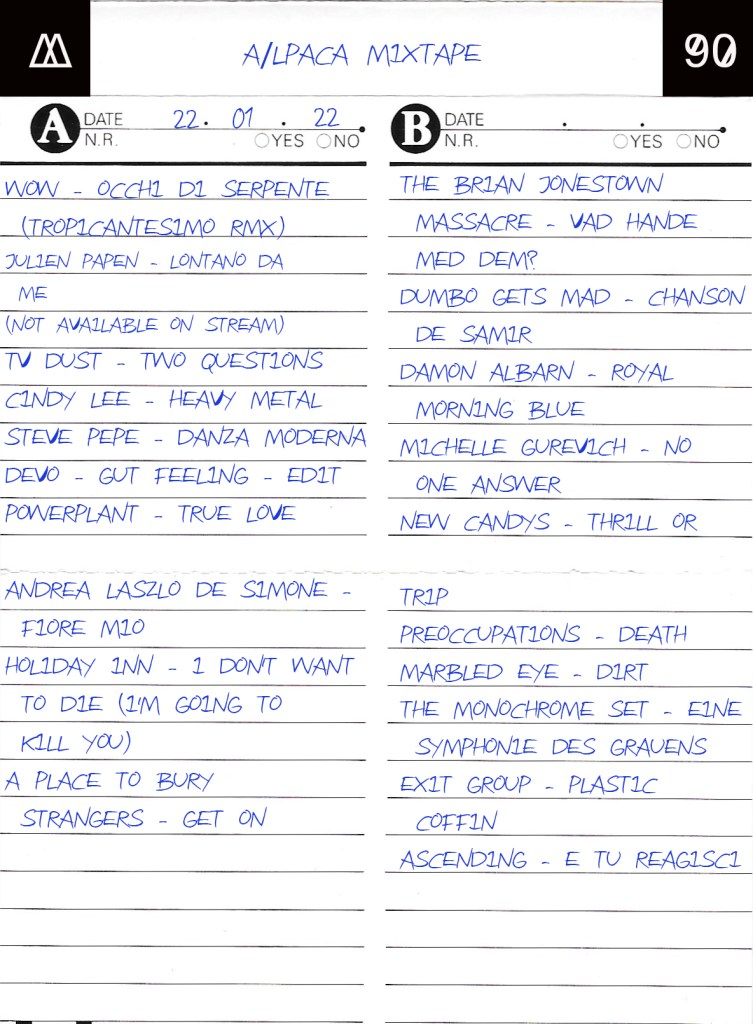 A/LPACA MIXTAPE
90
A DATE 22. 01 . 22
N.R. YES NO
WOW - OCCHI DI SERPENTE
(TROPICANTESIMO RMX)
JULIEN PAPEN - LONTANO DA
ME
(NOT AVAILABLE ON STREAM)
TV DUST - TWO QUESTIONS
CINDY LEE - HEAVY METAL
STEVE PEPE - DANZA MODERNA
DEVO - GUT FEELING - EDIT
POWERPLANT - TRUE LOVE
ANDREA LASZLO DE SIMONE -
FIORE MIO
HOLIDAY INN - I DON'T WANT
TO DIE (I'M GOING TO
KILL YOU)
A PLACE TO BURY
STRANGERS - GET ON
B DATE . .
N.R. YES NO
THE BRIAN JONESTOWN
MASSACRE - VAD HANDE
MED DEM?
DUMBO GETS MAD - CHANSON
DE SAMIR
DAMON ALBARN - ROYAL
MORNING BLUE
MICHELLE GUREVICH - NO
ONE ANSWER
NEW CANDYS - THRILL OR
TRIP
PREOCCUPATIONS - DEATH
MARBLED EYE - DIRT
THE MONOCHROME SET - EINE
SYMPHONIE DES GRAUENS
EXIT GROUP - PLASTIC
COFFIN
ASCENDING - E TU REAGISCI